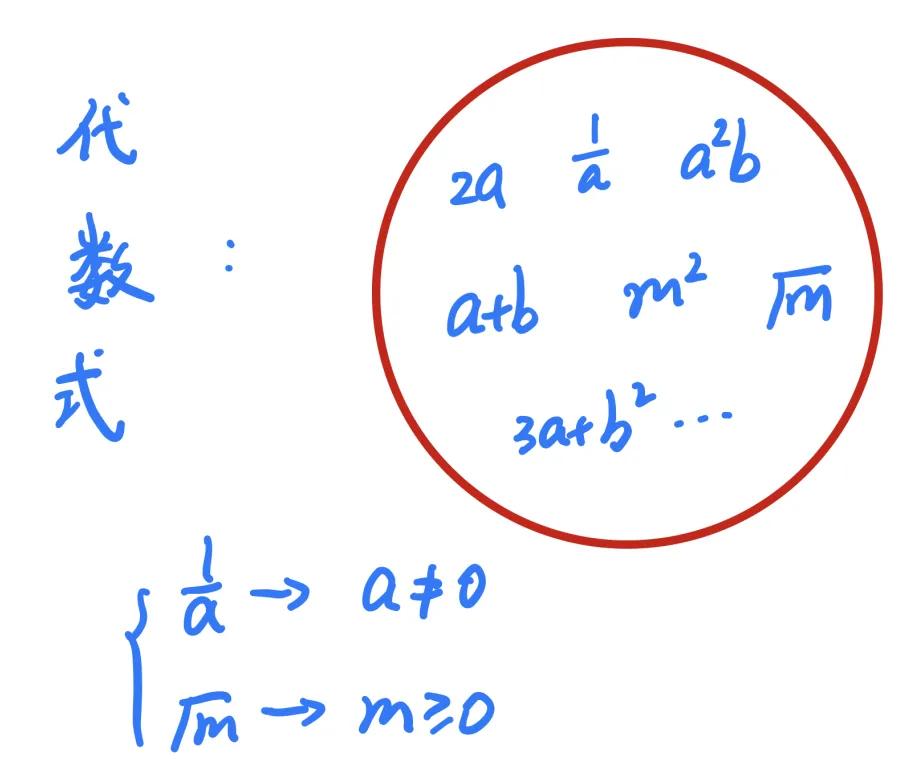 代数式：
2a 1/a a²b
a+b m² √m
3a+b² ...
1/a → a≠0
√m → m≥0